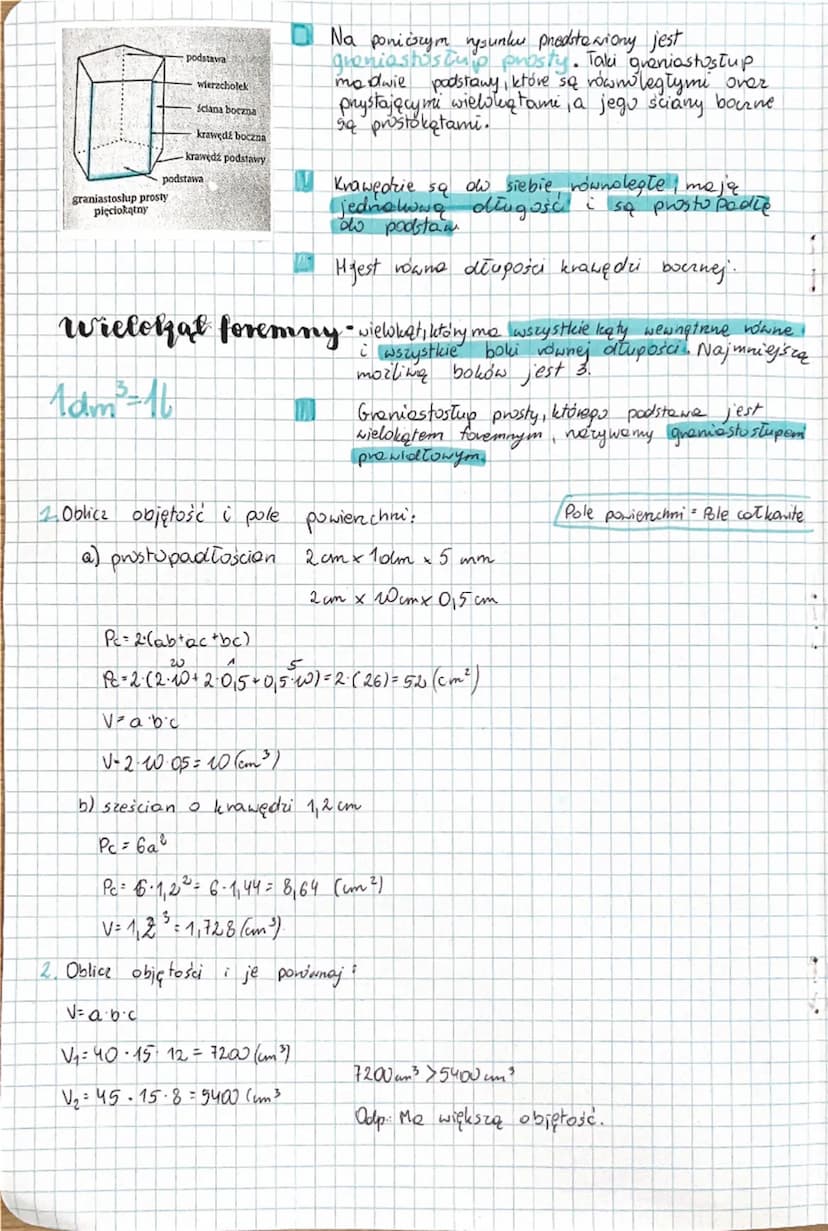 podstawa
wierzchołek
ściana boczna
krawędź boczna
krawędź podstawy
podstawa
graniastosłup prosty
pięciokątny
Na poniższym rysunku przedstawiony jest
graniastosłup prosty. Taki graniastosłup
ma dwie podstawy, które są równoległymi oraz
przystającymi wielokątami, a jego ściany boczne
są prostokątami.
Krawędzie są do siebie równoległe, mają
jednakową długość i są prostopadłe
do podstaw.
H jest równa długości krawędzi bocznej.
Wielokąt foremny - wielokąt, który ma wszystkie kąty wewnętrzne równe
i wszystkie boki równej długości. Najmniejszą
możliwą boków jest 3.
1dm³=1l
Graniastosłup prosty, którego podstawa jest
wielokątem foremnym, nazywamy graniastosłupem
prawidłowym.
1. Oblicz objętość i pole powierzchni:
Pole powierzchni = Pole całkowite
a) prostopadłościan 2cm x 1dm x 5 mm
2cm x 10cm x 0,5cm
Pc = 2·(ab+ac+bc)
20 1 5
Pc = 2·(2·10+2·0,5+0,5·10) = 2·(26) = 52 (cm²)
V = a·b·c
V = 2·10·0,5 = 10 (cm³)
b) sześcian o krawędzi 1,2cm
Pc = 6a²
Pc = 6·1,2² = 6·1,44 = 8,64 (cm²)
V = 1,2³ = 1,728 (cm³)
2. Oblicz objętości i je porównaj:
V = a·b·c
V₁ = 40·15·12 = 7200 (cm³)
V₂ = 45·15·8 = 5400 (cm³
7200cm³ > 5400cm³
Odp: Ma większą objętość.